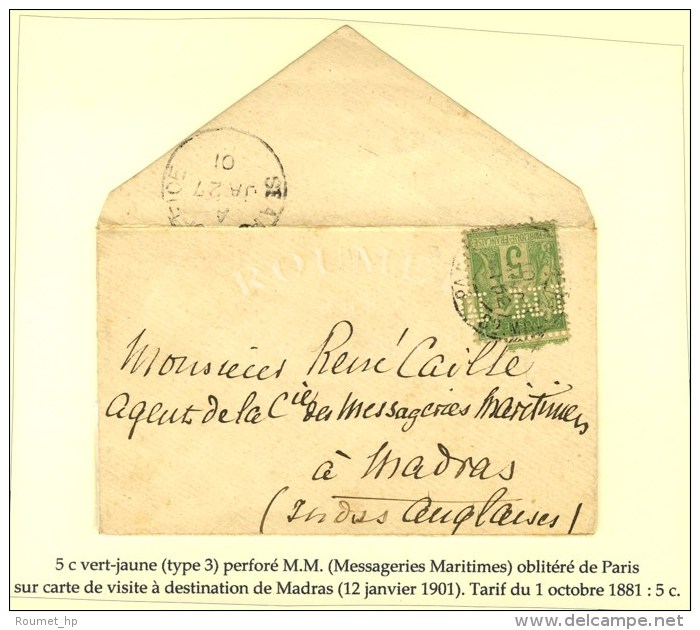 JA 27
01
ROUMET
5
Monsieur René Caille
Agent de la Cie des Messageries Maritimes
à Madras
(Indes Anglaises)
5 c vert-jaune (type 3) perforé M.M. (Messageries Maritimes) oblitéré de Paris
sur carte de visite à destination de Madras (12 janvier 1901). Tarif du 1 octobre 1881 : 5 c.
Roumet_hp
delcampe.net